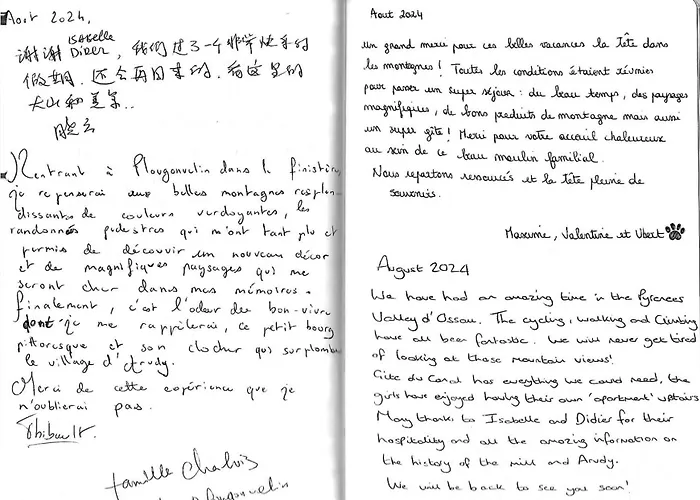 Aout 2024,
谢谢 ISABELLE Didier, 我们过了一个非常快乐的
假期. 还会再回来的. 看这里的
大山和美景..
晓云
Rentrant à Plougonvelin dans le finistère,
je repenserai aux belles montagnes resplen-
dissantes de couleurs verdoyantes, les
randonnées pedestres qui m'ont tant plu et
permis de découvrir un nouveau décor
et de magnifiques paysages qui me
seront cher dans mes mémoires.
finalement, c'est l'odeur du bon-vivre
dont je me rappèlerai, ce petit bourg
pittoresque et son clocher qui surplombe
le village d'Arudy.
Merci de cette expérience que je
n'oublierai pas.
Thibault.
famille Chalois
Plougonvelin
Aout 2024
Un grand merci pour ces belles vacances la tête dans
les montagnes ! Toutes les conditions étaient réunies
pour passer un super séjour : du beau temps, des paysages
magnifiques, de bons produits de montagne mais aussi
un super gîte ! Merci pour votre accueil chaleureux
au sein de ce beau moulin familial.
Nous repartons ressourcés et la tête pleine de
souvenirs.
Maxime, Valentine et Ubert
August 2024
We have had an amazing time in the Pyrenees
Valley d'Ossau. The cycling, walking and climbing
have all been fantastic. We will never get tired
of looking at those mountain views!
Gite du Canal has everything we could need, the
girls have enjoyed having their own 'apartment' upstairs
Many thanks to Isabelle and Didier for their
hospitality and all the amazing information on
the history of the mill and Arudy.
We will be back to see you soon!